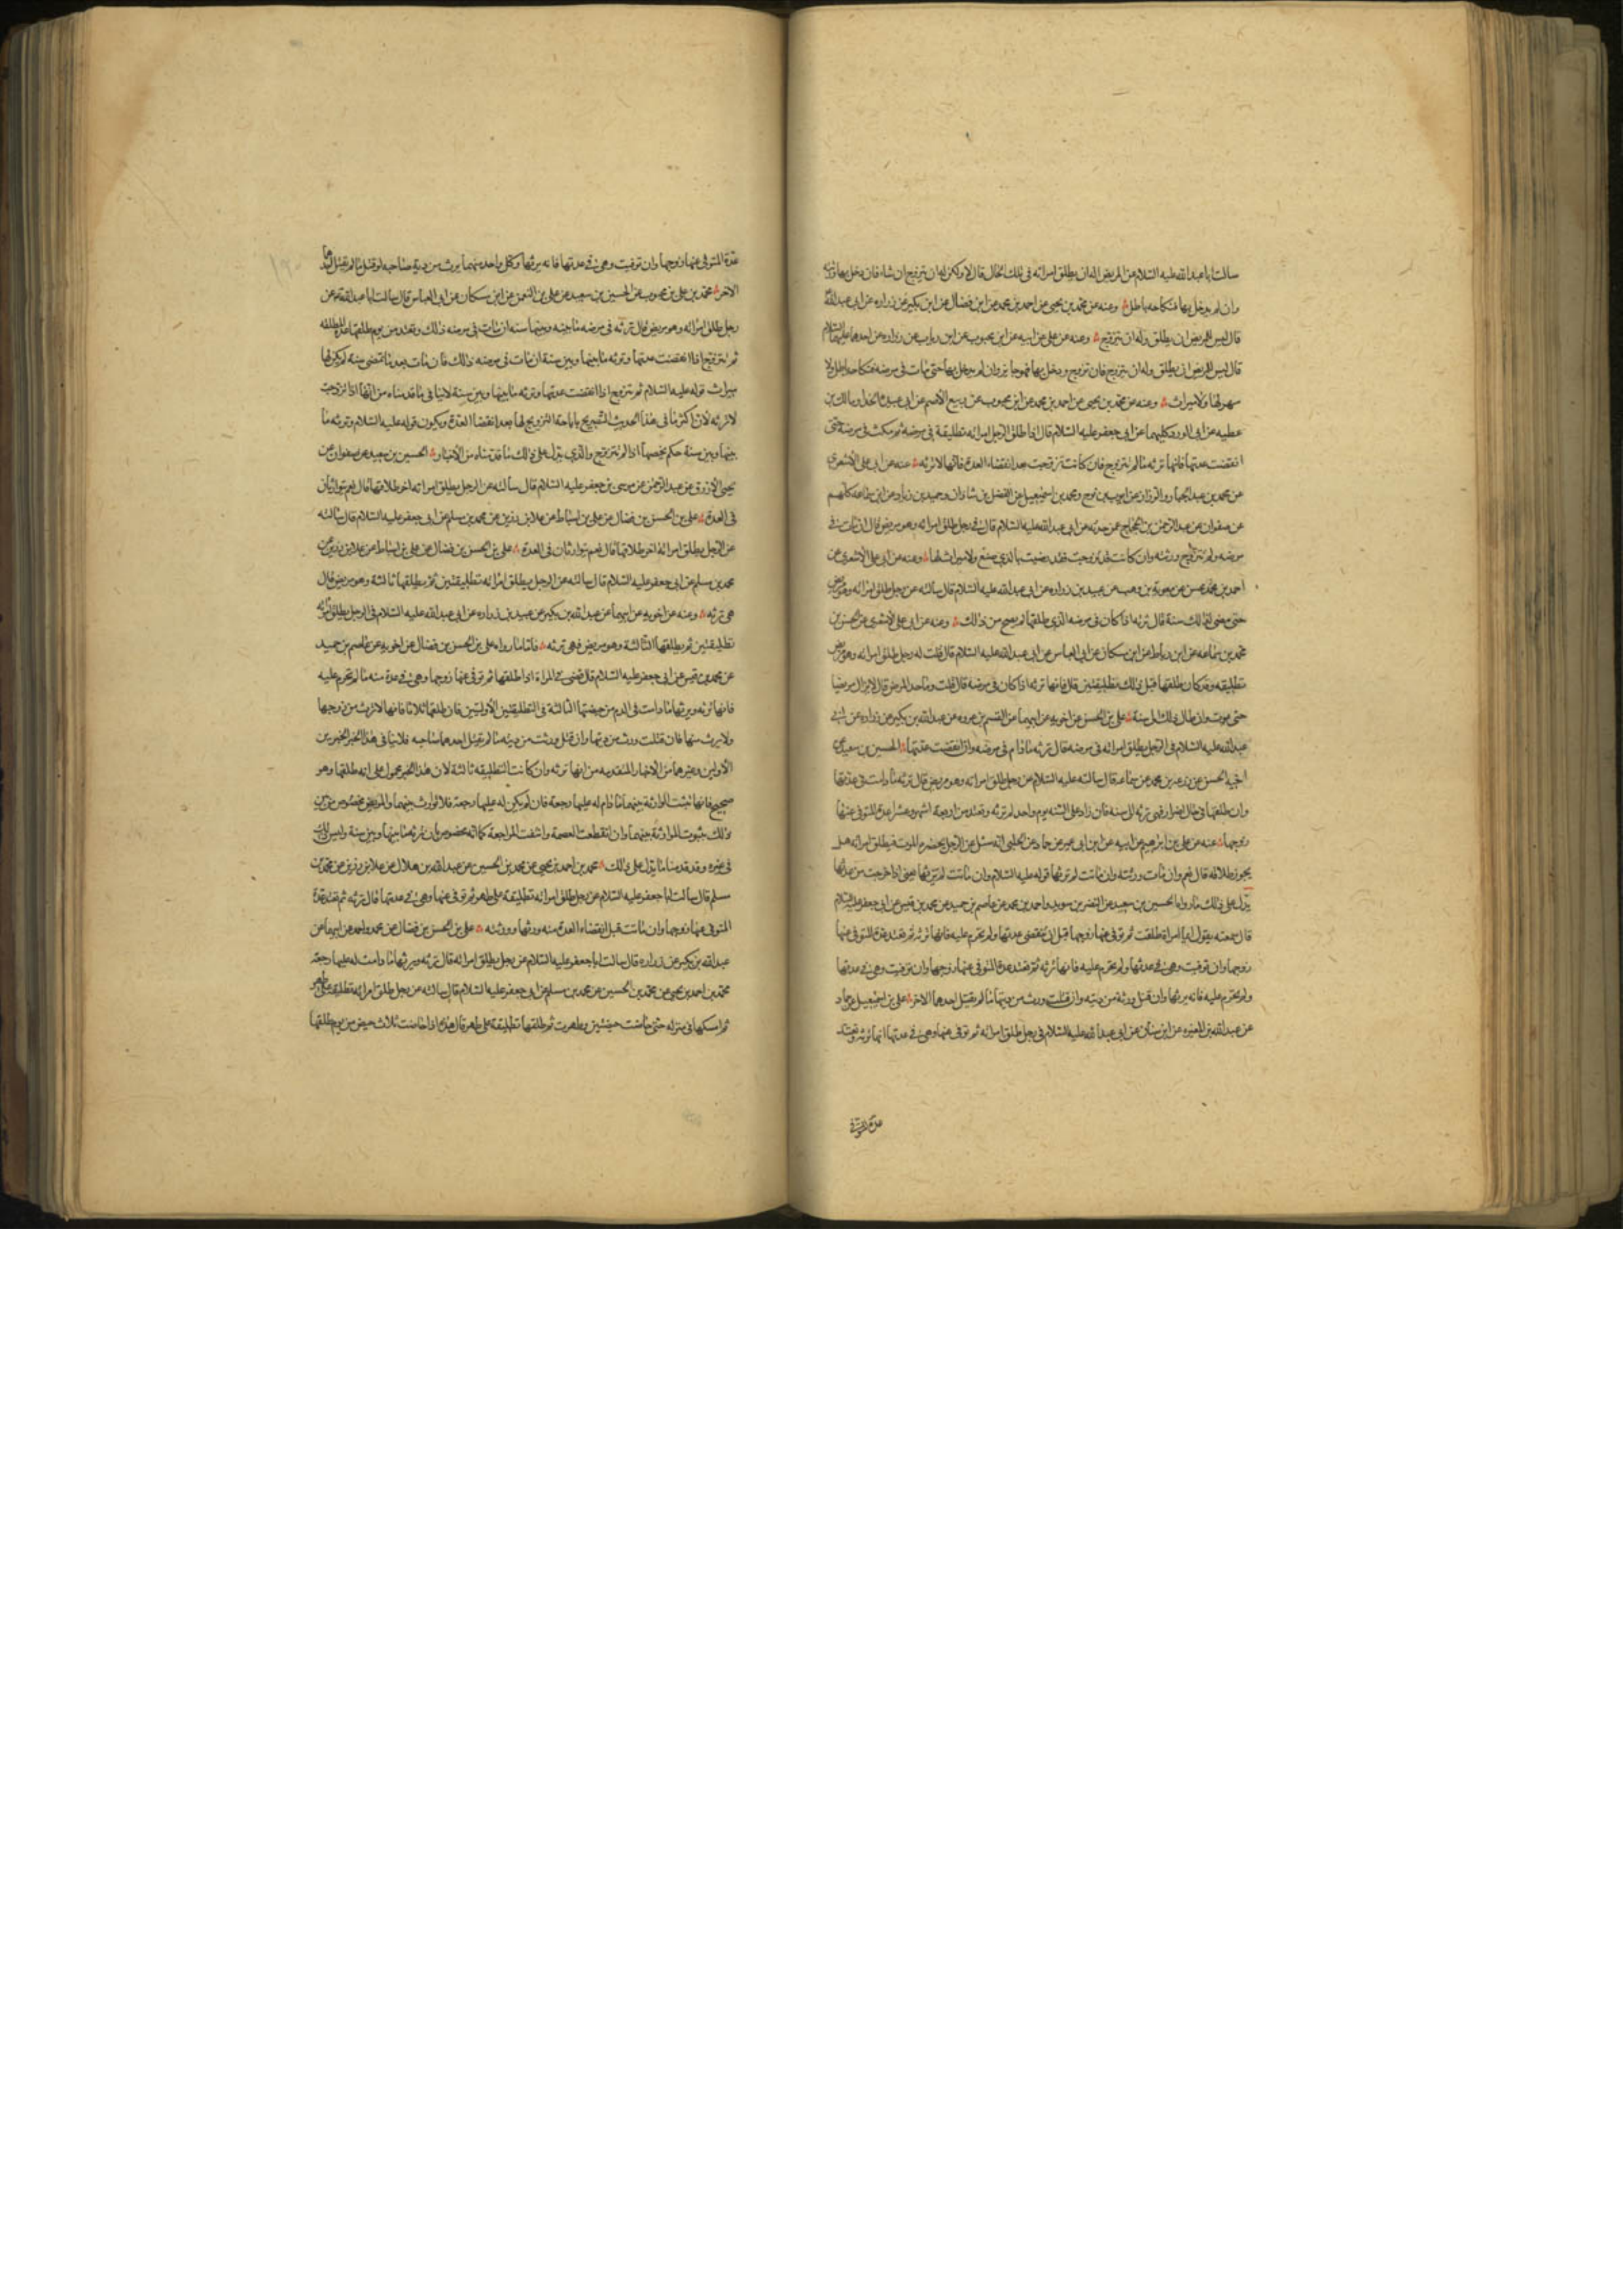 سالت ابا عبد الله عليه السلام عن المريض اله ان يطلق امراته في تلك الحال قال لا ولكن له ان يتزوج ان شاء فان دخل بها ورثته
وان لم يدخل بها فنكاحه باطل وعنه عن محمد بن يحيى عن احمد بن محمد عن ابن فضال عن ابن بكير عن زراره عن ابي عبد الله
قال ليس للمريض ان يطلق وله ان يتزوج وعنه عن علي عن ابيه عن ابن محبوب عن ابن رياب عن زراره عن احدهما عليهما السلام
قال ليس للمريض ان يطلق وله ان يتزوج فان تزوج ودخل بها فهو جايز وان لم يدخل بها حتى مات في مرضه فنكاحه باطل ولا
مهر لها ولا ميراث وعنه عن محمد بن يحيى عن احمد بن محمد عن ابن محبوب عن ربيع الاصم عن ابي عبيدة الحذا ومالك بن
عطيه عن ابي الورد كليهما عن ابي جعفر عليه السلام قال اذا طلق الرجل امراته تطليقة في مرضه ثم مكث في مرضه حتى
انقضت عدتها فانها ترثه ما لم تتزوج فان كانت تزوجت بعد انقضاء العدة فانها لا ترثه عنه عن ابي علي الاشعري
عن محمد بن عبد الجبار والرزاز عن ايوب بن نوح ومحمد بن اسمعيل عن الفضل بن شاذان وحميد بن زياد عن ابن سماعه كلهم
عن صفوان عن عبد الرحمن بن الحجاج عمن حدثه عن ابي عبد الله عليه السلام قال في رجل طلق امراته وهو مريض قال ان مات في
مرضه ولم تتزوج ورثته وان كانت قد تزوجت فقد رضيت بالذي صنع ولا ميراث لها وعنه عن ابي علي الاشعري عن
احمد بن محسن عن معوية بن وهب عن عبيد بن زراره عن ابي عبد الله عليه السلام قال سالته عن رجل طلق امراته وهو مريض
حتى مضى لذلك سنة قال ترثه اذا كان في مرضه الذي طلقها لم يصح من ذلك وعنه عن ابي علي الاشعري عن الحسن بن
محمد بن سماعه عن ابن رباط عن ابن مسكان عن ابي العباس عن ابي عبد الله عليه السلام قال قلت له رجل طلق امراته وهو مريض
تطليقه وقد كان طلقها قبل ذلك تطليقتين قال فانها ترثه اذا كان في مرضه قال قلت وما حد المرض قال لا يزال مريضا
حتى يموت وان طال ذلك الى سنة علي بن الحسن عن اخويه عن ابيهما عن القسم بن عروه عن عبد الله بن بكير عن زراره عن ابي
عبد الله عليه السلام في الرجل يطلق امراته في مرضه قال ترثه ما دام في مرضه وان انقضت عدتها الحسين بن سعيد عن
اخيه الحسن عن زرعه بن محمد عن سماعه قال سالته عليه السلام عن رجل طلق امراته وهو مريض قال ترثه ما دامت في عدتها
وان طلقها في حال اضرار فهي ترثه الى سنه فان زاد على السنه يوم واحد لم ترثه وتعتد من اربعة اشهر وعشرا عدة المتوفى عنها
زوجها عنه عن علي بن ابرهيم عن ابيه عن ابن ابي عمير عن حماد عن الحلبي انه سئل عن الرجل يحضره الموت فيطلق امراته هل
يجوز طلاقه قال نعم وان مات ورثته وان ماتت لم يرثها قوله عليه السلام وان ماتت لم يرثها يعني اذا خرجت من عدتها
يدل على ذلك ما رواه الحسين بن سعيد عن النضر بن سويد واحمد بن محمد عن عاصم بن حميد عن محمد بن قيس عن ابي جعفر عليه السلام
قال سمعته يقول ايما امراة طلقت ثم توفي عنها زوجها قبل ان تنقضي عدتها ولم تحرم عليه فانها ترثه ثم تعتد عدة المتوفى عنها
زوجها وان توفيت وهي في عدتها ولم تحرم عليه فانها ترثه ثم تعتد عدة المتوفى عنها زوجها وان توفيت وهي في عدتها
ولم تحرم عليه فانه يرثها وان قتل ورثت من ديته وان قتلت ورث من ديتها ما لم يقتل احدهما الاخر علي بن اسمعيل عن حماد
عن عبد الله بن المغيره عن ابن سنان عن ابي عبد الله عليه السلام في رجل طلق امراته ثم توفي عنها وهي في عدتها انها ترثه وتعتد
عدة المتوفى
عدة المتوفى عنها زوجها وان توفيت وهي في عدتها فانه يرثها وكل واحد منهما يرث من دية صاحبه لو قتل ما لم يقتل احدهما
الاخر محمد بن علي بن محبوب عن الحسين بن سعيد عن علي بن النعمن عن ابن مسكان عن ابي العباس قال سالت ابا عبد الله عن
رجل طلق امراته وهو مريض قال ترثه في مرضه ما بينه وبينها سنه ان مات في مرضه ذلك وتعتد من يوم طلقها عدة المطلقه
ثم تتزوج اذا انقضت عدتها وترثه ما بينها وبين سنة ان مات في مرضه ذلك فان مات بعد ما تمضي سنه لم يكن لها
ميراث قوله عليه السلام ثم تتزوج اذا انقضت عدتها وترثه ما بينها وبين سنة لا ينافي ما قدمناه من انها اذا تزوجت
لا ترثه لان اكثر ما في هذا الحديث التصريح باباحة التزويج لها بعد انقضاء العدة ويكون قوله عليه السلام وترثه ما
بينها وبين سنة حكم يخصها اذا لم تتزوج والذي يدل على ذلك ما قدمناه من الاخبار الحسين بن سعيد عن صفوان عن
يحيى الازرق عن عبد الرحمن عن موسى بن جعفر عليه السلام قال سالته عن الرجل يطلق امراته اخر طلاقها قال نعم يتوارثان
في العدة علي بن الحسن بن فضال عن علي بن اسباط عن علا بن رزين عن محمد بن مسلم عن ابي جعفر عليه السلام قال سالته
عن الرجل يطلق امراته اخر طلاقها قال نعم يتوارثان في العدة علي بن الحسن بن فضال عن علي بن اسباط عن علا بن رزين عن
محمد بن مسلم عن ابي جعفر عليه السلام قال سالته عن الرجل يطلق امراته تطليقتين ثم يطلقها ثالثة وهو مريض قال
هي ترثه وعنه عن اخويه عن ابيهما عن عبد الله بن بكير عن عبيد بن زراره عن ابي عبد الله عليه السلام في الرجل يطلق امراته
تطليقتين ثم يطلقها الثالثة وهو مريض فهي ترثه فاما ما رواه علي بن الحسن بن فضال عن اخويه عن عاصم بن حميد
عن محمد بن قيس عن ابي جعفر عليه السلام قال قضى في المراة اذا طلقها ثم توفي عنها زوجها وهي في عدة منه ما لم تحرم عليه
فانها ترثه ويرثها ما دامت في الدم من حيضتها الثالثة في التطليقتين الاوليتين فان طلقها ثلاثا فانها لا ترث من زوجها
ولا يرث منها فان قتلت ورث من ديتها وان قتل ورثت من ديته ما لم يقتل احدهما صاحبه فلا ينافي هذا الخبر الخبرين
الاولين وغيرهما من الاخبار المتقدمه من انها ترثه وان كانت التطليقه ثالثة لان هذا الخبر محمول على انه طلقها وهو
صحيح فانها تثبت الموارثة بينهما ما دام له عليها رجعة فان لم يكن له عليها رجعة فلا توارث بينهما والمريض مخصوص من بين
ذلك بثبوت الموارثة بينهما وان انقطعت العصمة وانتفت المراجعة كما انه مخصوص بان ترثه ما بينها وبين سنة وليس ذلك
في غيره وقد قدمنا ما يدل على ذلك محمد بن احمد بن يحيى عن محمد بن الحسين عن عبد الله بن هلال عن علا بن رزين عن محمد بن
مسلم قال سالت ابا جعفر عليه السلام عن رجل طلق امراته تطليقة على طهر ثم توفي عنها وهي في عدتها قال ترثه ثم تعتد عدة
المتوفى عنها زوجها وان ماتت قبل انقضاء العدة منه ورثها وورثته علي بن الحسن بن فضال عن محمد واحمد عن ابيهما عن
عبد الله بن بكير عن زراره قال سالت ابا جعفر عليه السلام عن رجل يطلق امراته قال ترثه ويرثها ما دامت له عليها رجعة
محمد بن احمد بن يحيى عن محمد بن الحسين عن محمد بن مسلم عن ابي جعفر عليه السلام قال سالته عن رجل طلق امراته تطليقة على طهر
ثم امسكها في منزله حتى حاضت حيضتين وطهرت ثم طلقها تطليقة على طهر قال هذه اذا حاضت ثلاث حيض من يوم طلقها